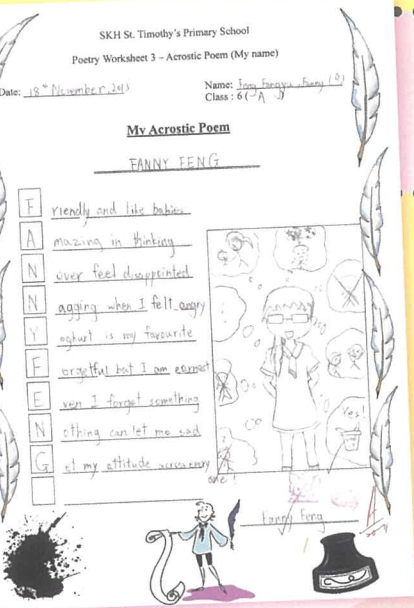 SKH St. Timothy's Primary School
Poetry Worksheet 3 – Acrostic Poem (My name)
Date: 18th November, 2013
Name: Feng Fangyu, Fanny
Class : 6 ( A )
My Acrostic Poem
FANNY FENG
F riendly and like babies
A mazing in thinking
N ever feel disappointed
N agging when I felt angry
Y oghurt is my favourite
F orgetful but I am earnest
E ven I forget something
N othing can let me sad
G et my attitude across every
one!
Yes!
Fanny Feng